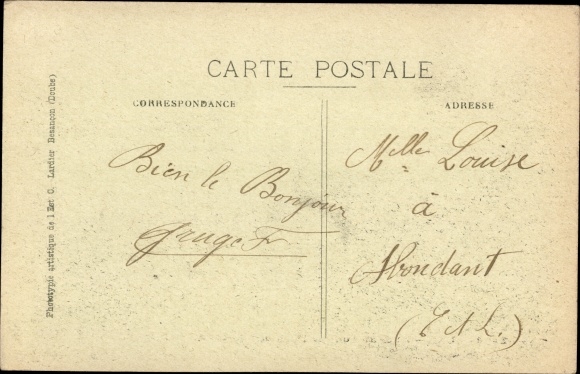 CARTE POSTALE
CORRESPONDANCE
ADRESSE
Bien le Bonjour
Melle Louise
à
Abondant
(E et L.)
Phototypie artistique de l'Est C. Lardier Besançon (Doubs)